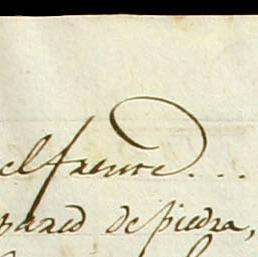 el frente...
pared de piedra,